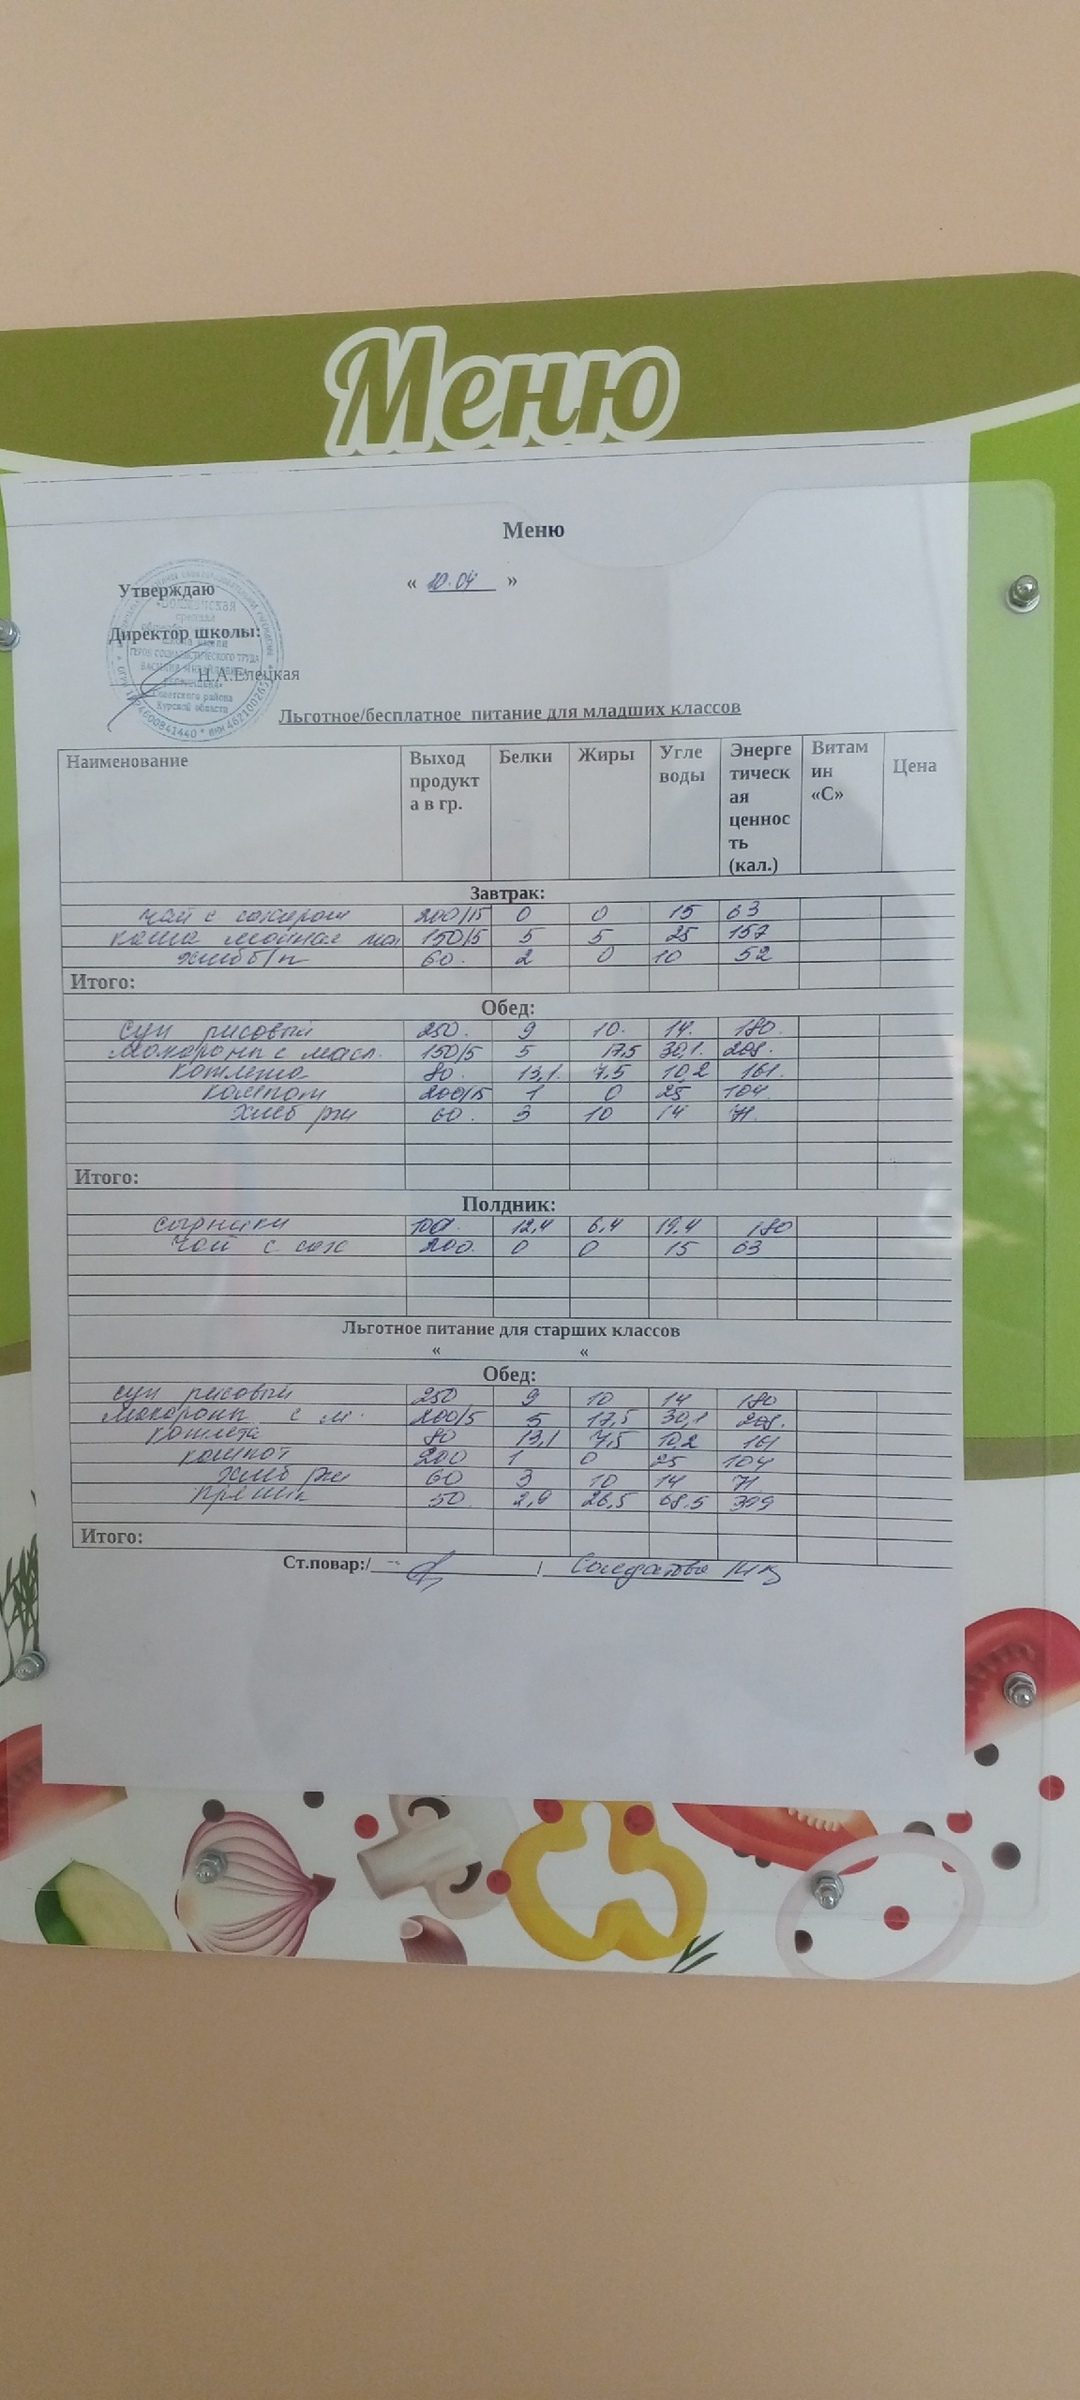 Меню
Меню
« 10.04 »
Утверждаю
Директор школы:
Н.А.Елецкая
средняя
ГЕРОЯ СОЦИАЛИСТИЧЕСКОГО ТРУДА
района
Курской области
Льготное/бесплатное питание для младших классов
Наименование Выход продукта в гр. Белки Жиры Углеводы Энергетическая ценность (кал.) Витамин «С» Цена
Завтрак:
чай с сахаром 200/15 0 0 15 63
каша мол 150/5 5 5 25 157
хлеб б/п 60. 2 0 10 52
Итого:
Обед:
суп рисовый 250. 9 10. 14. 180.
макароны с масл. 150/5 5 17,5 30,1. 208.
котлета 80. 13,1. 7,5 10,2 161.
компот 200/15 1 0 25 104.
хлеб рж 60. 3 10 14 71.
Итого:
Полдник:
сырники 100. 12,4 6,4 19,4 180
чай с сах 200. 0 0 15 63
Льготное питание для старших классов
« «
Обед:
суп рисовый 250 9 10 14 180
макароны с м. 200/5 5 17,5 30,1 208.
котлета 80 13,1 7,5 10,2 161
компот 200 1 0 25 104
хлеб рж 60 3 10 14 71
пряник 50 2,9 26,5 68,5 399
Итого:
Ст.повар:/ / Солдатова